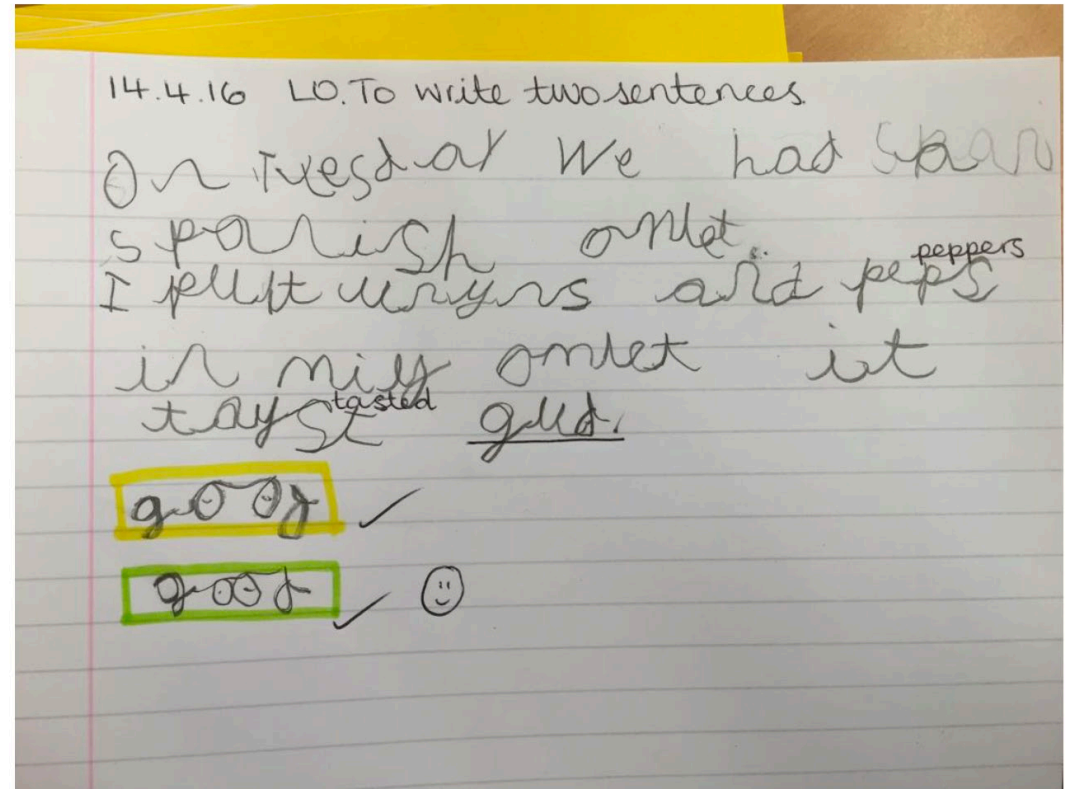 14.4.16 LO. To write two sentences.
On Tuesday We had span
spanish omlet.
peppers
I put unyns and peps
in miy omlet it
tasted
tayst gud.
good ✓
good ✓ ☺